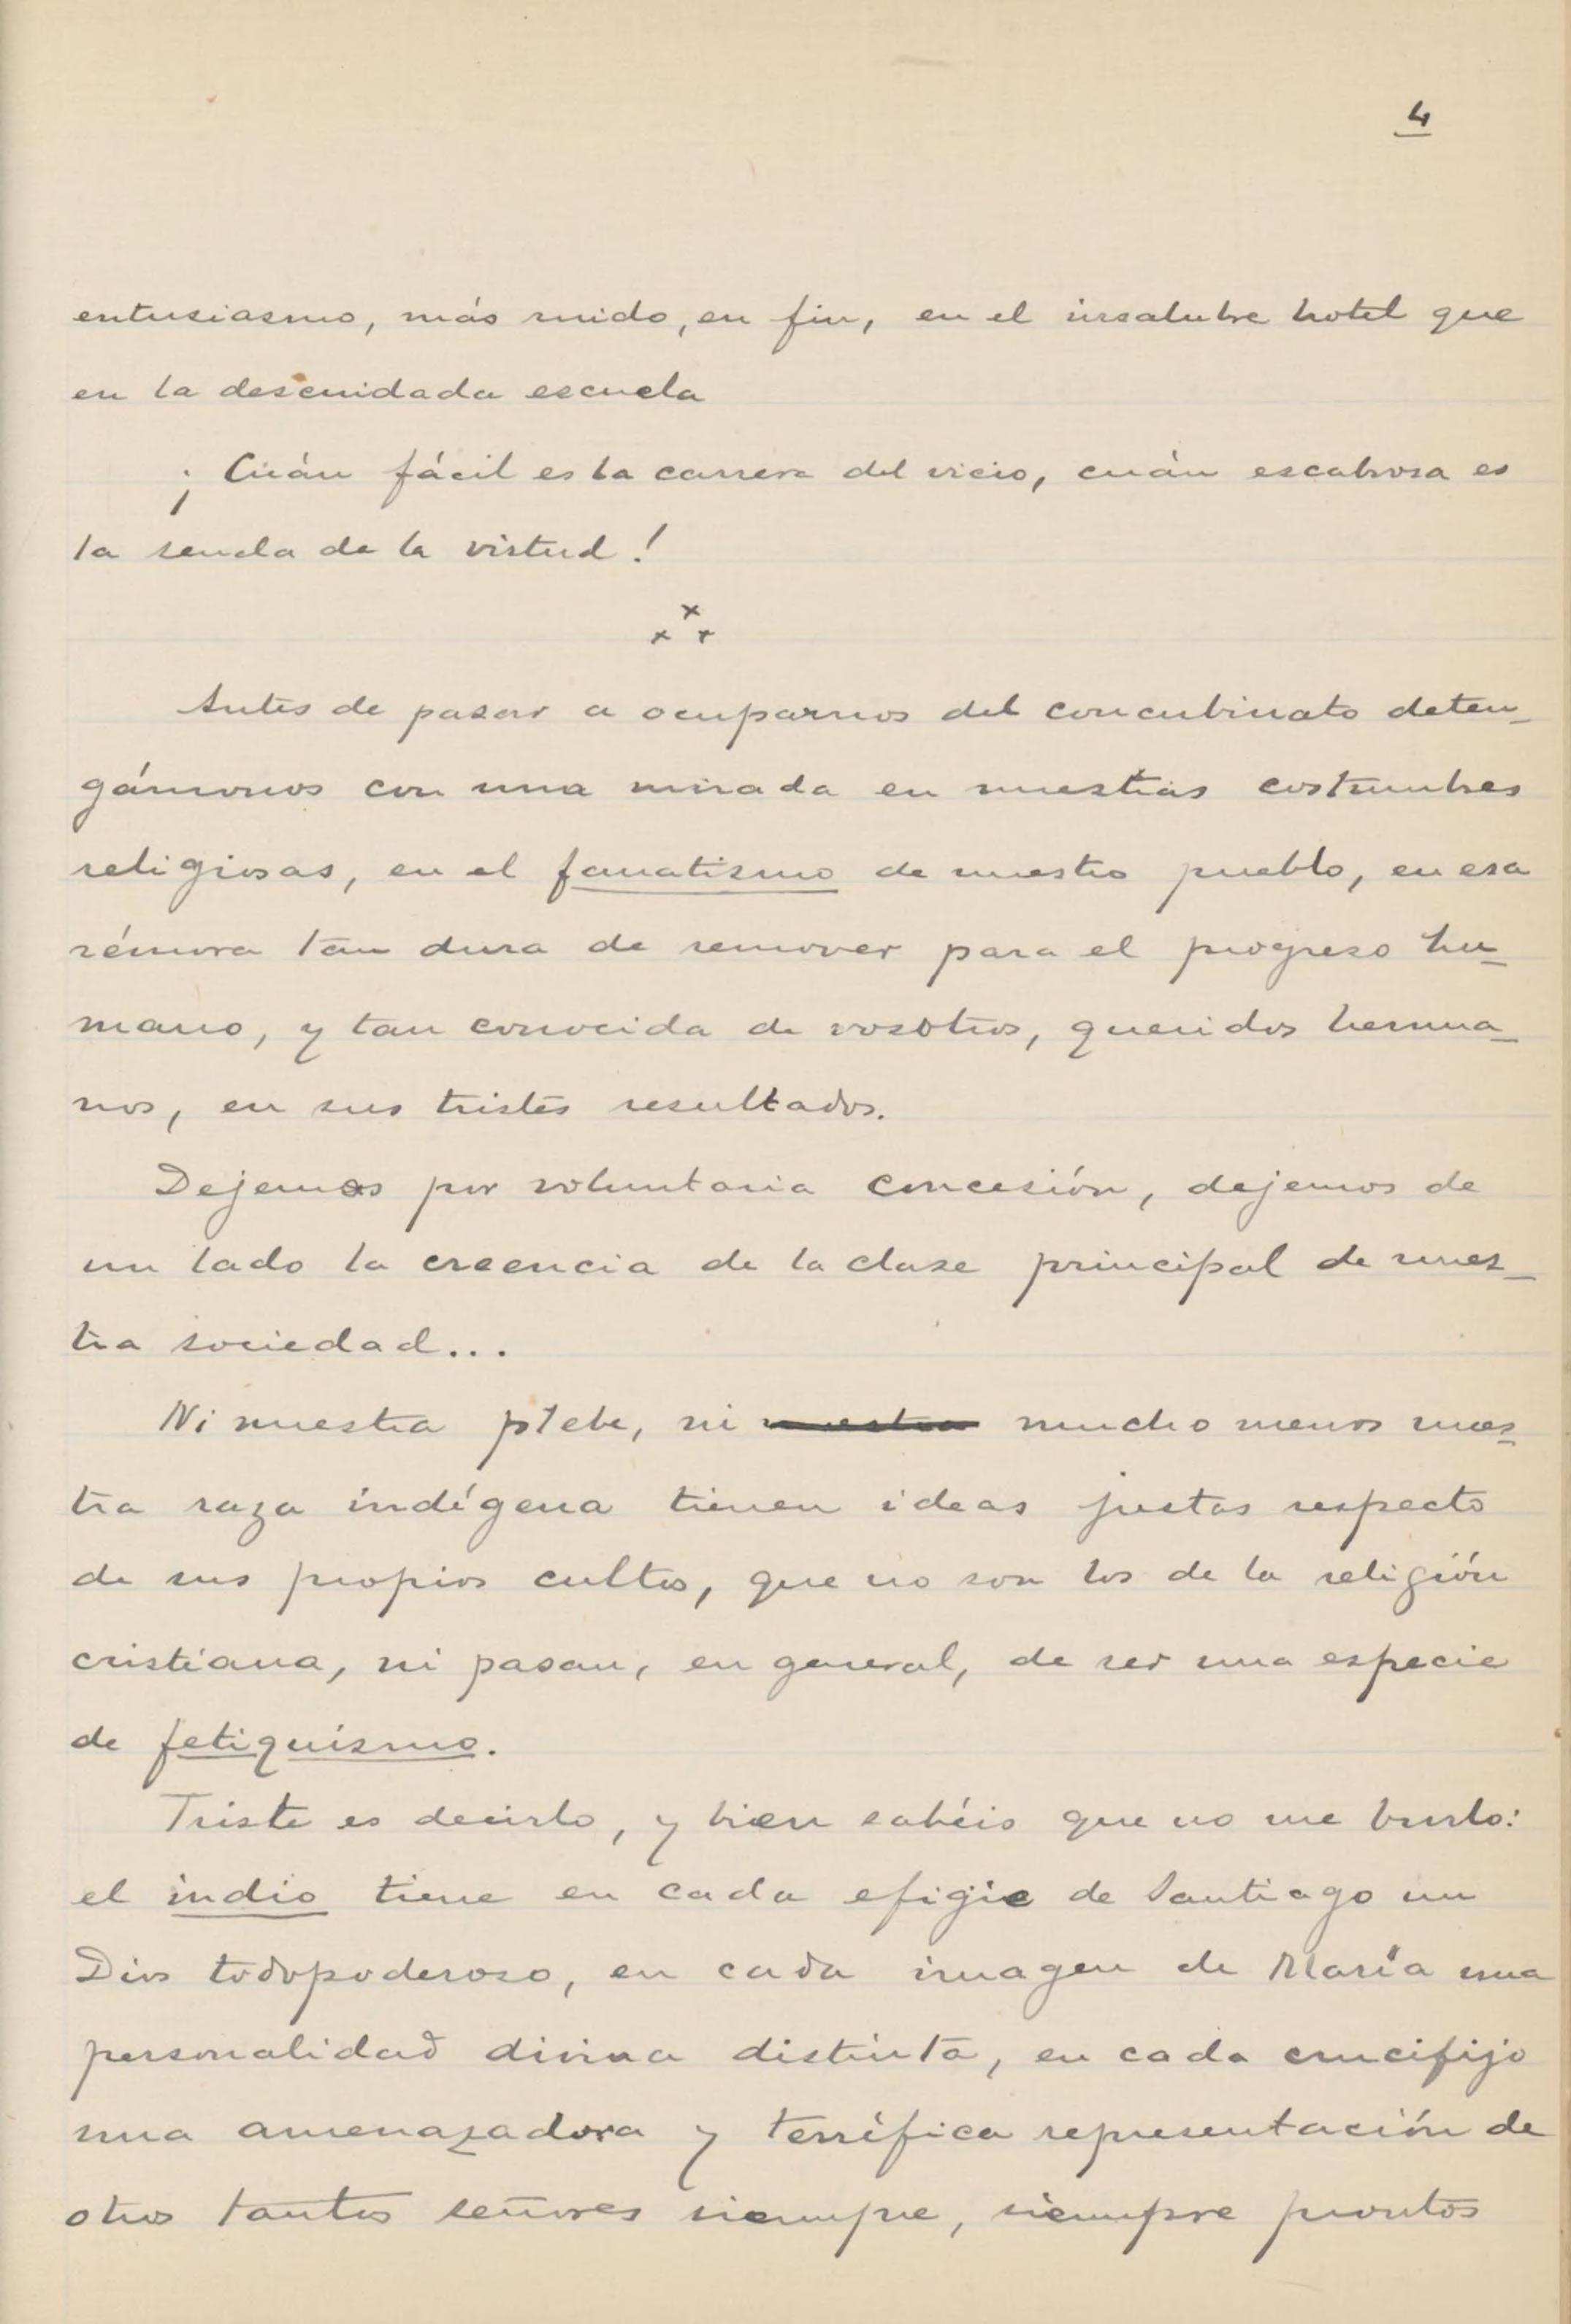 4
entusiasmo, más ruido, en fin, en el insalubre hotel que
en la descuidada escuela
¡Cuán fácil es la carrera del vicio, cuán escabrosa es
la senda de la virtud!
x
x x
Antes de pasar a ocuparnos del concubinato deten-
gámonos con una mirada en nuestras costumbres
religiosas, en el fanatismo de nuestro pueblo, en esa
rémora tan dura de remover para el progreso hu-
mano, y tan conocida de vosotros, queridos herma-
nos, en sus tristes resultados.
Dejemos por voluntaria concesión, dejemos de
un lado la creencia de la clase principal de nues-
tra sociedad...
Ni nuestra plebe, ni nuestra mucho menos nues-
tra raza indígena tienen ideas justas respecto
de sus propios cultos, que no son los de la religión
cristiana, ni pasan, en general, de ser una especie
de fetiquismo.
Triste es decirlo, y bien sabéis que no me burlo:
el indio tiene en cada efigie de Santiago un
Dios todopoderoso, en cada imagen de María una
personalidad divina distinta, en cada crucifijo
una amenazadora y terrífica representación de
otros tantos señores siempre, siempre prontos